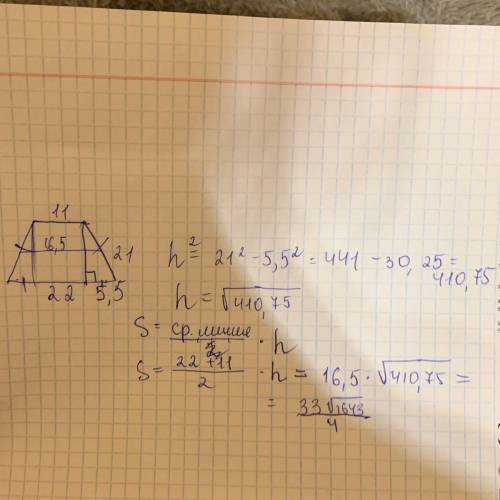 11
16,5
21
22 5,5
h² = 21² - 5,5² = 441 - 30,25 =
410,75
h = √410,75
S = ср. линия / 2 · h
S = 22 + 11 / 2 · h = 16,5 · √410,75 =
= 33√1643 / 4